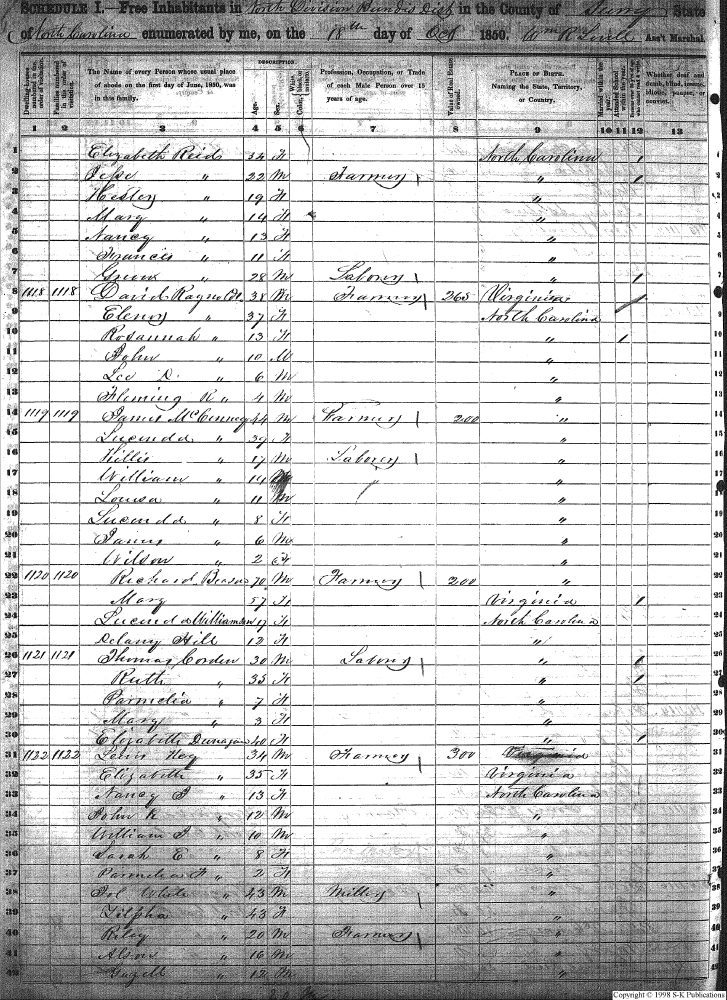 SCHEDULE I.—Free Inhabitants in North Division in the County of Surry State
of North Carolina enumerated by me, on the 18th day of Oct 1850. Wm R Ass't Marshal.
DESCRIPTION
Dwelling-houses numbered in the order of visitation. Families numbered in the order of visitation. The Name of every Person whose usual place of abode on the first day of June, 1850, was in this family. Age. Sex. White, black, or mulatto. Color, Profession, Occupation, or Trade of each Male Person over 15 years of age. Value of Real Estate owned. PLACE OF BIRTH. Naming the State, Territory, or Country. Married within the year. Attended School within the year. Whether deaf and dumb, blind, insane, idiotic, pauper, or convict.
1 2 3 4 5 6 7 8 9 10 11 12 13
1 Elizabeth Reid 54 F North Carolina / 1
2 Jesse " 22 M Farmer " / 2
3 Hesley " 19 F " 3
4 Mary " 14 F " 4
5 Nancy " 13 F " 5
6 Francis " 11 F " 6
7 Green " 28 M Laborer " / 7
8 1118 1118 David Raynolds 38 M Farmer 265 Virginia / 8
9 Eleno " 37 F North Carolina 9
10 Rosannah " 13 F " / 10
11 John " 10 M " 11
12 Lee " 6 M " 12
13 Fleming R " 4 M " 13
14 1119 1119 James McCenney 44 M Farmer 200 " 14
15 Lucinda " 39 F " 15
16 Hillis " 17 M Laborer " 16
17 William " 14 " 17
18 Louisa " 11 M " 18
19 Lucinda " 8 F " 19
20 James " 6 M " 20
21 Wilson " 2 " 21
22 1120 1120 Richard 70 M Farmer 200 " 22
23 Mary 57 F Virginia / 23
24 Lucinda Williamson 17 F North Carolina 24
25 Delany Hill 12 F " 25
26 1121 1121 Thomas Corden 30 M Laborer " / 26
27 Ruth " 35 F " / 27
28 Parmelia " 7 F " 28
29 Mary " 3 F " 29
30 Elizabeth Dunagan 40 F " / 30
31 1122 1122 Lewis Key 34 M Farmer 300 Virginia 31
32 Elizabeth " 35 F Virginia 32
33 Nancy J " 13 F North Carolina 33
34 John " 12 M " 34
35 William J " 10 M " 35
36 Sarah E " 8 F " 36
37 " 2 F " 37
38 White " 43 M Miller " 38
39 Zilpha " 43 F " 39
40 Riley " 20 M Farmer " 40
41 " 16 M " 41
42 " 12 M " 42
Copyright © 1998 S-K Publications